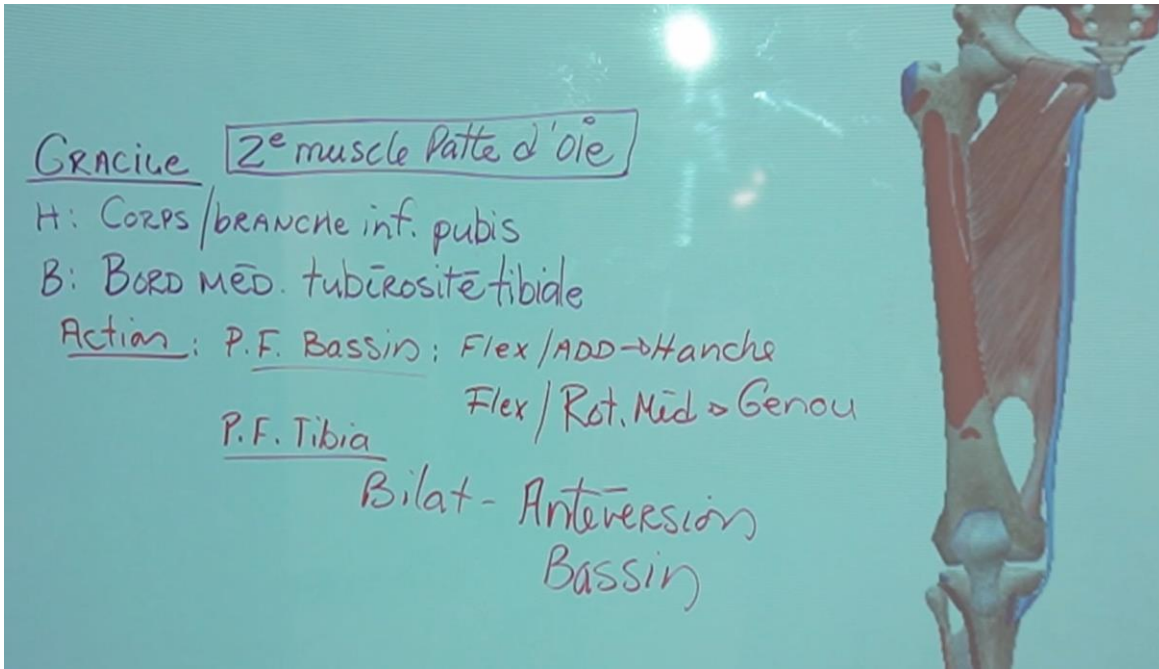 GRACILE 2e muscle Patte d'oie
H: CORPS/bRANCHE inf. pubis
B: BORD MÉD. tubérosité tibiale
Action: P.F. Bassin: Flex/ADD→Hanche
Flex/Rot. Méd → Genou
P.F. Tibia
Bilat - Antéversion
Bassin